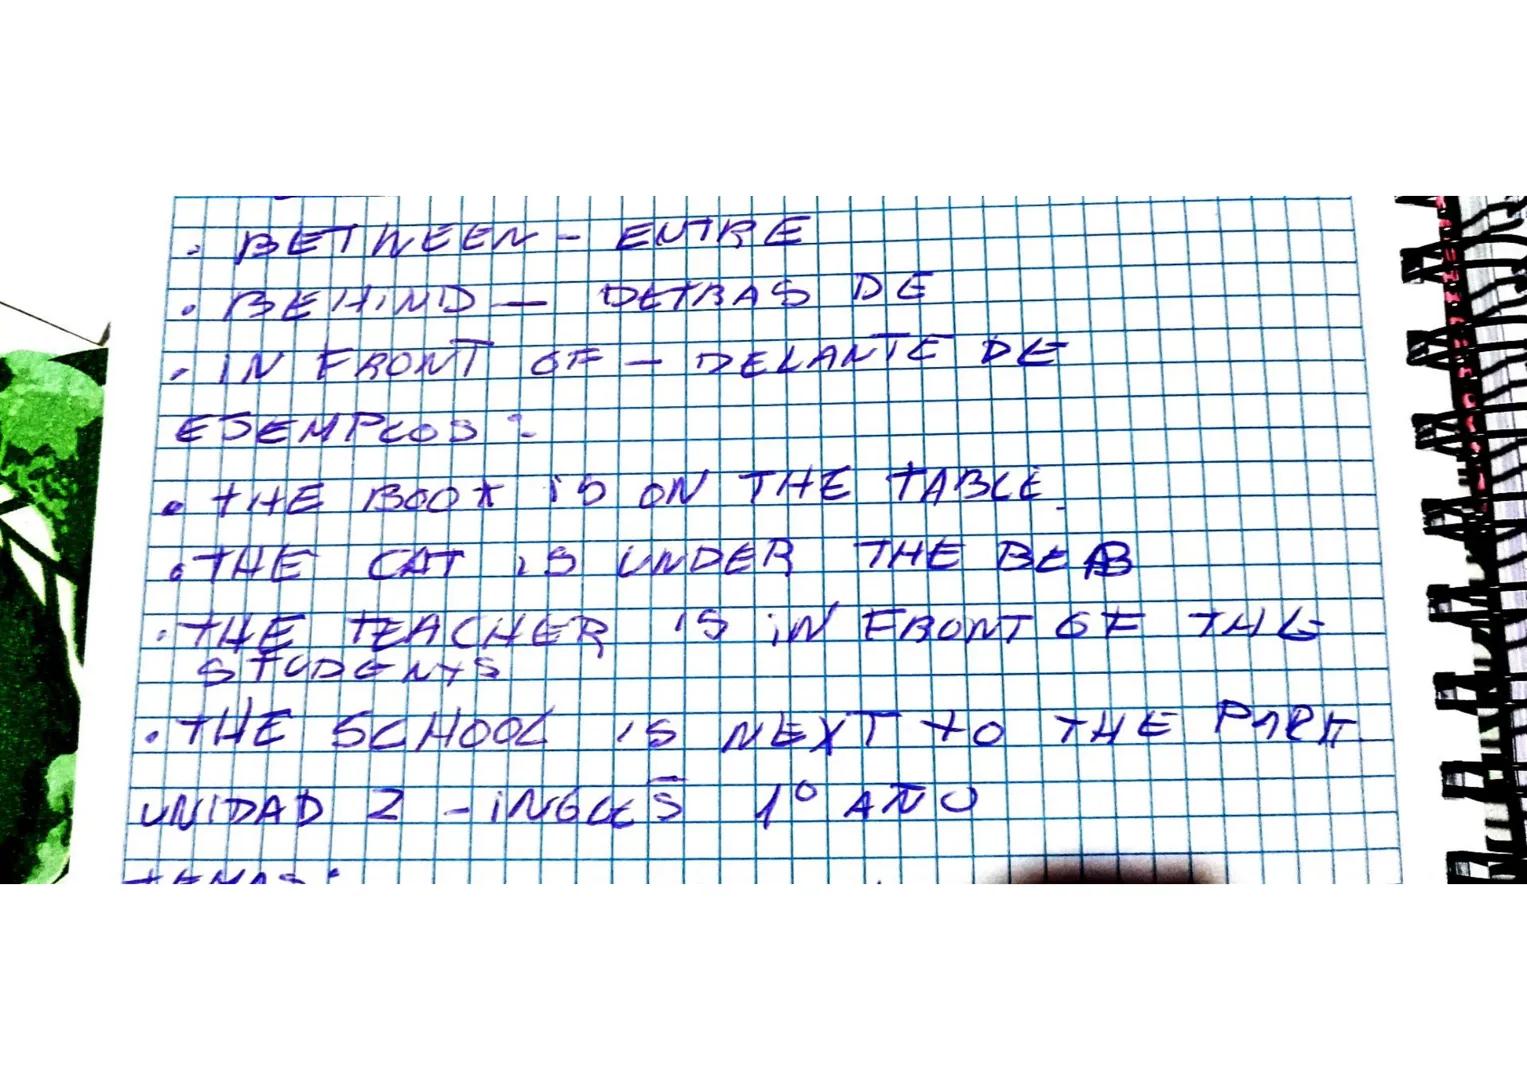 . BETWEEN - ENTRE
. BEHIND — DETRAS DE
. IN FRONT OF - DELANTE DE
EJEMPLOS:
. THE BOOK IS ON THE TABLE.
. THE CAT IS UNDER THE
. THE TEACHER IS IN FRONT OF THE
STUDENTS
. THE SCHOOL IS NEXT TO THE PARK.
UNIDAD 2 - INGLES 1º AÑO
TEMAS: